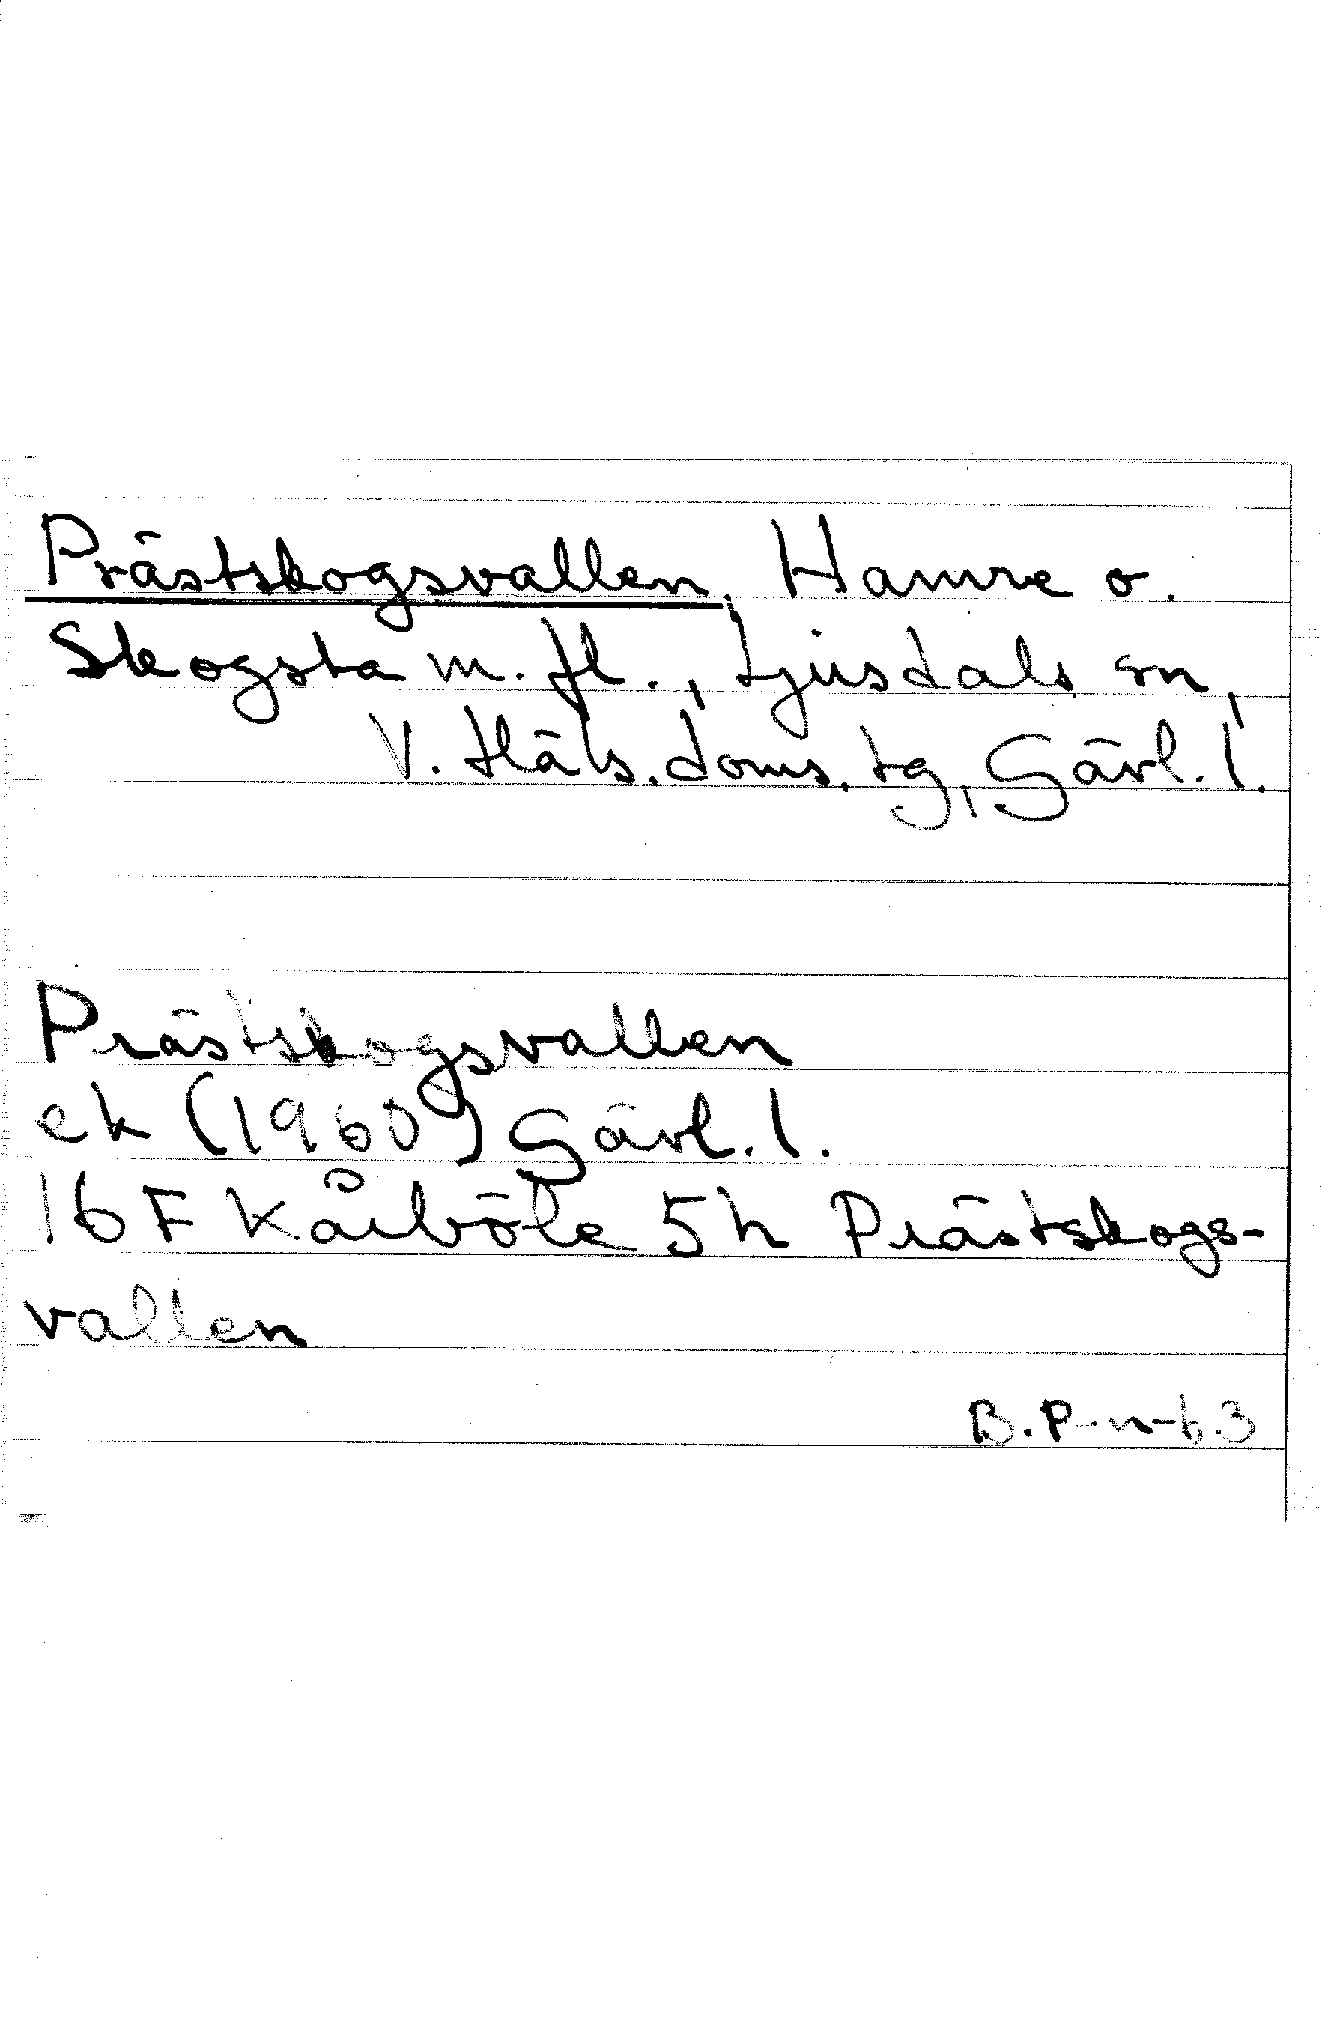 Prästskogsvallen, Hamre o.
Skogsta m. fl., Ljusdals sn,
V. Häls. doms. tg, Gävl. l.
Prästskogsvallen
ek (1960) Gävl. l.
16 F Kårböle 5 h Prästskogs-
vallen
B.P-n-63